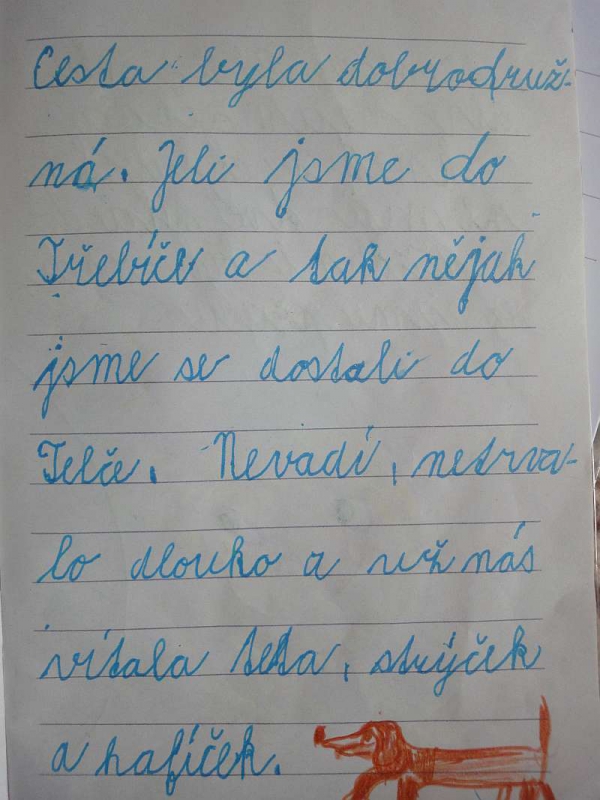 Cesta byla dobrodruž-
ná. Jeli jsme do
Třebíče a tak nějak
jsme se dostali do
Telče. Nevadí, netrva-
lo dlouho a už nás
vítala teta, strýček
a hafíček.